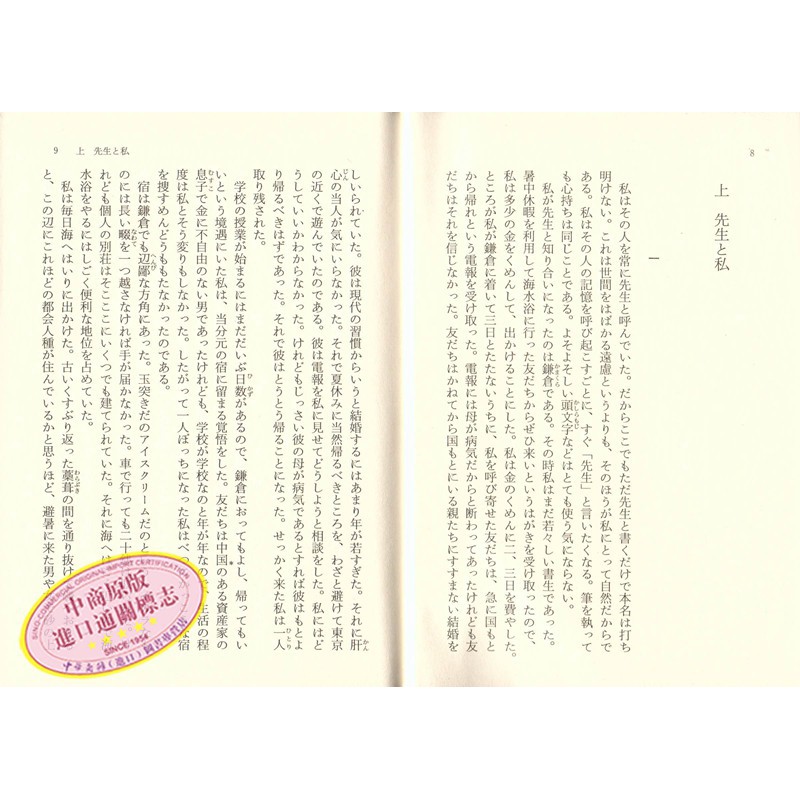 8
上　先生と私
一
私はその人を常に先生と呼んでいた。だからここでもただ先生と書くだけで本名は打ち
明けない。これは世間をはばかる遠慮というよりも、そのほうが私にとって自然だからで
ある。私はその人の記憶を呼び起こすごとに、すぐ「先生」と言いたくなる。筆を執って
も心持ちは同じことである。よそよそしい頭文字などはとても使う気にならない。
私が先生と知り合いになったのは鎌倉である。その時私はまだ若々しい書生であった。
暑中休暇を利用して海水浴に行った友だちからぜひ来いというはがきを受け取ったので、
私は多少の金をくめんして、出かけることにした。私は金のくめんに二、三日を費やした。
ところが私が鎌倉に着いて三日とたたないうちに、私を呼び寄せた友だちは、急に国もと
から帰れという電報を受け取った。電報には母が病気だからと断わってあったけれども友
だちはそれを信じなかった。友だちはかねてから国もとにいる親たちにすすまない結婚を
9　上　先生と私
しいられていた。彼は現代の習慣からいうと結婚するにはあまり年が若すぎた。それに肝
心の当人が気にいらなかった。それで夏休みに当然帰るべきところを、わざと避けて東京
の近くで遊んでいたのである。彼は電報を私に見せてどうしようと相談をした。私にはど
うしていいかわからなかった。けれどもじっさい彼の母が病気であるとすれば彼はもとよ
り帰るべきはずであった。それで彼はとうとう帰ることになった。せっかく来た私は一人
取り残された。
学校の授業が始まるにはまだだいぶ日数があるので、鎌倉におってもよし、帰ってもい
いという境遇にいた私は、当分元の宿に留まる覚悟をした。友だちは中国のある資産家の
息子で金に不自由のない男であったけれども、学校が学校なのと年が年なので、生活の程
度は私とそう変りもしなかった。したがって一人ぼっちになった私はべつ
な宿
を捜すめんどうももたなかったのである。
宿は鎌倉でも辺鄙な方角にあった。玉突きだのアイスクリームだのと
のには長い畷を一つ越さなければ手が届かなかった。車で行っても二十
れども個人の別荘はそこここにいくつでも建てられていた。それに海へは
水浴をやるにはしごく便利な地位を占めていた。
私は毎日海へはいりに出かけた。古いくすぶり返った藁葺の間を通り抜け
と、この辺にこれほどの都会人種が住んでいるかと思うほど、避暑に来た男や
中商原版
進口通關標志
SINCE·1954